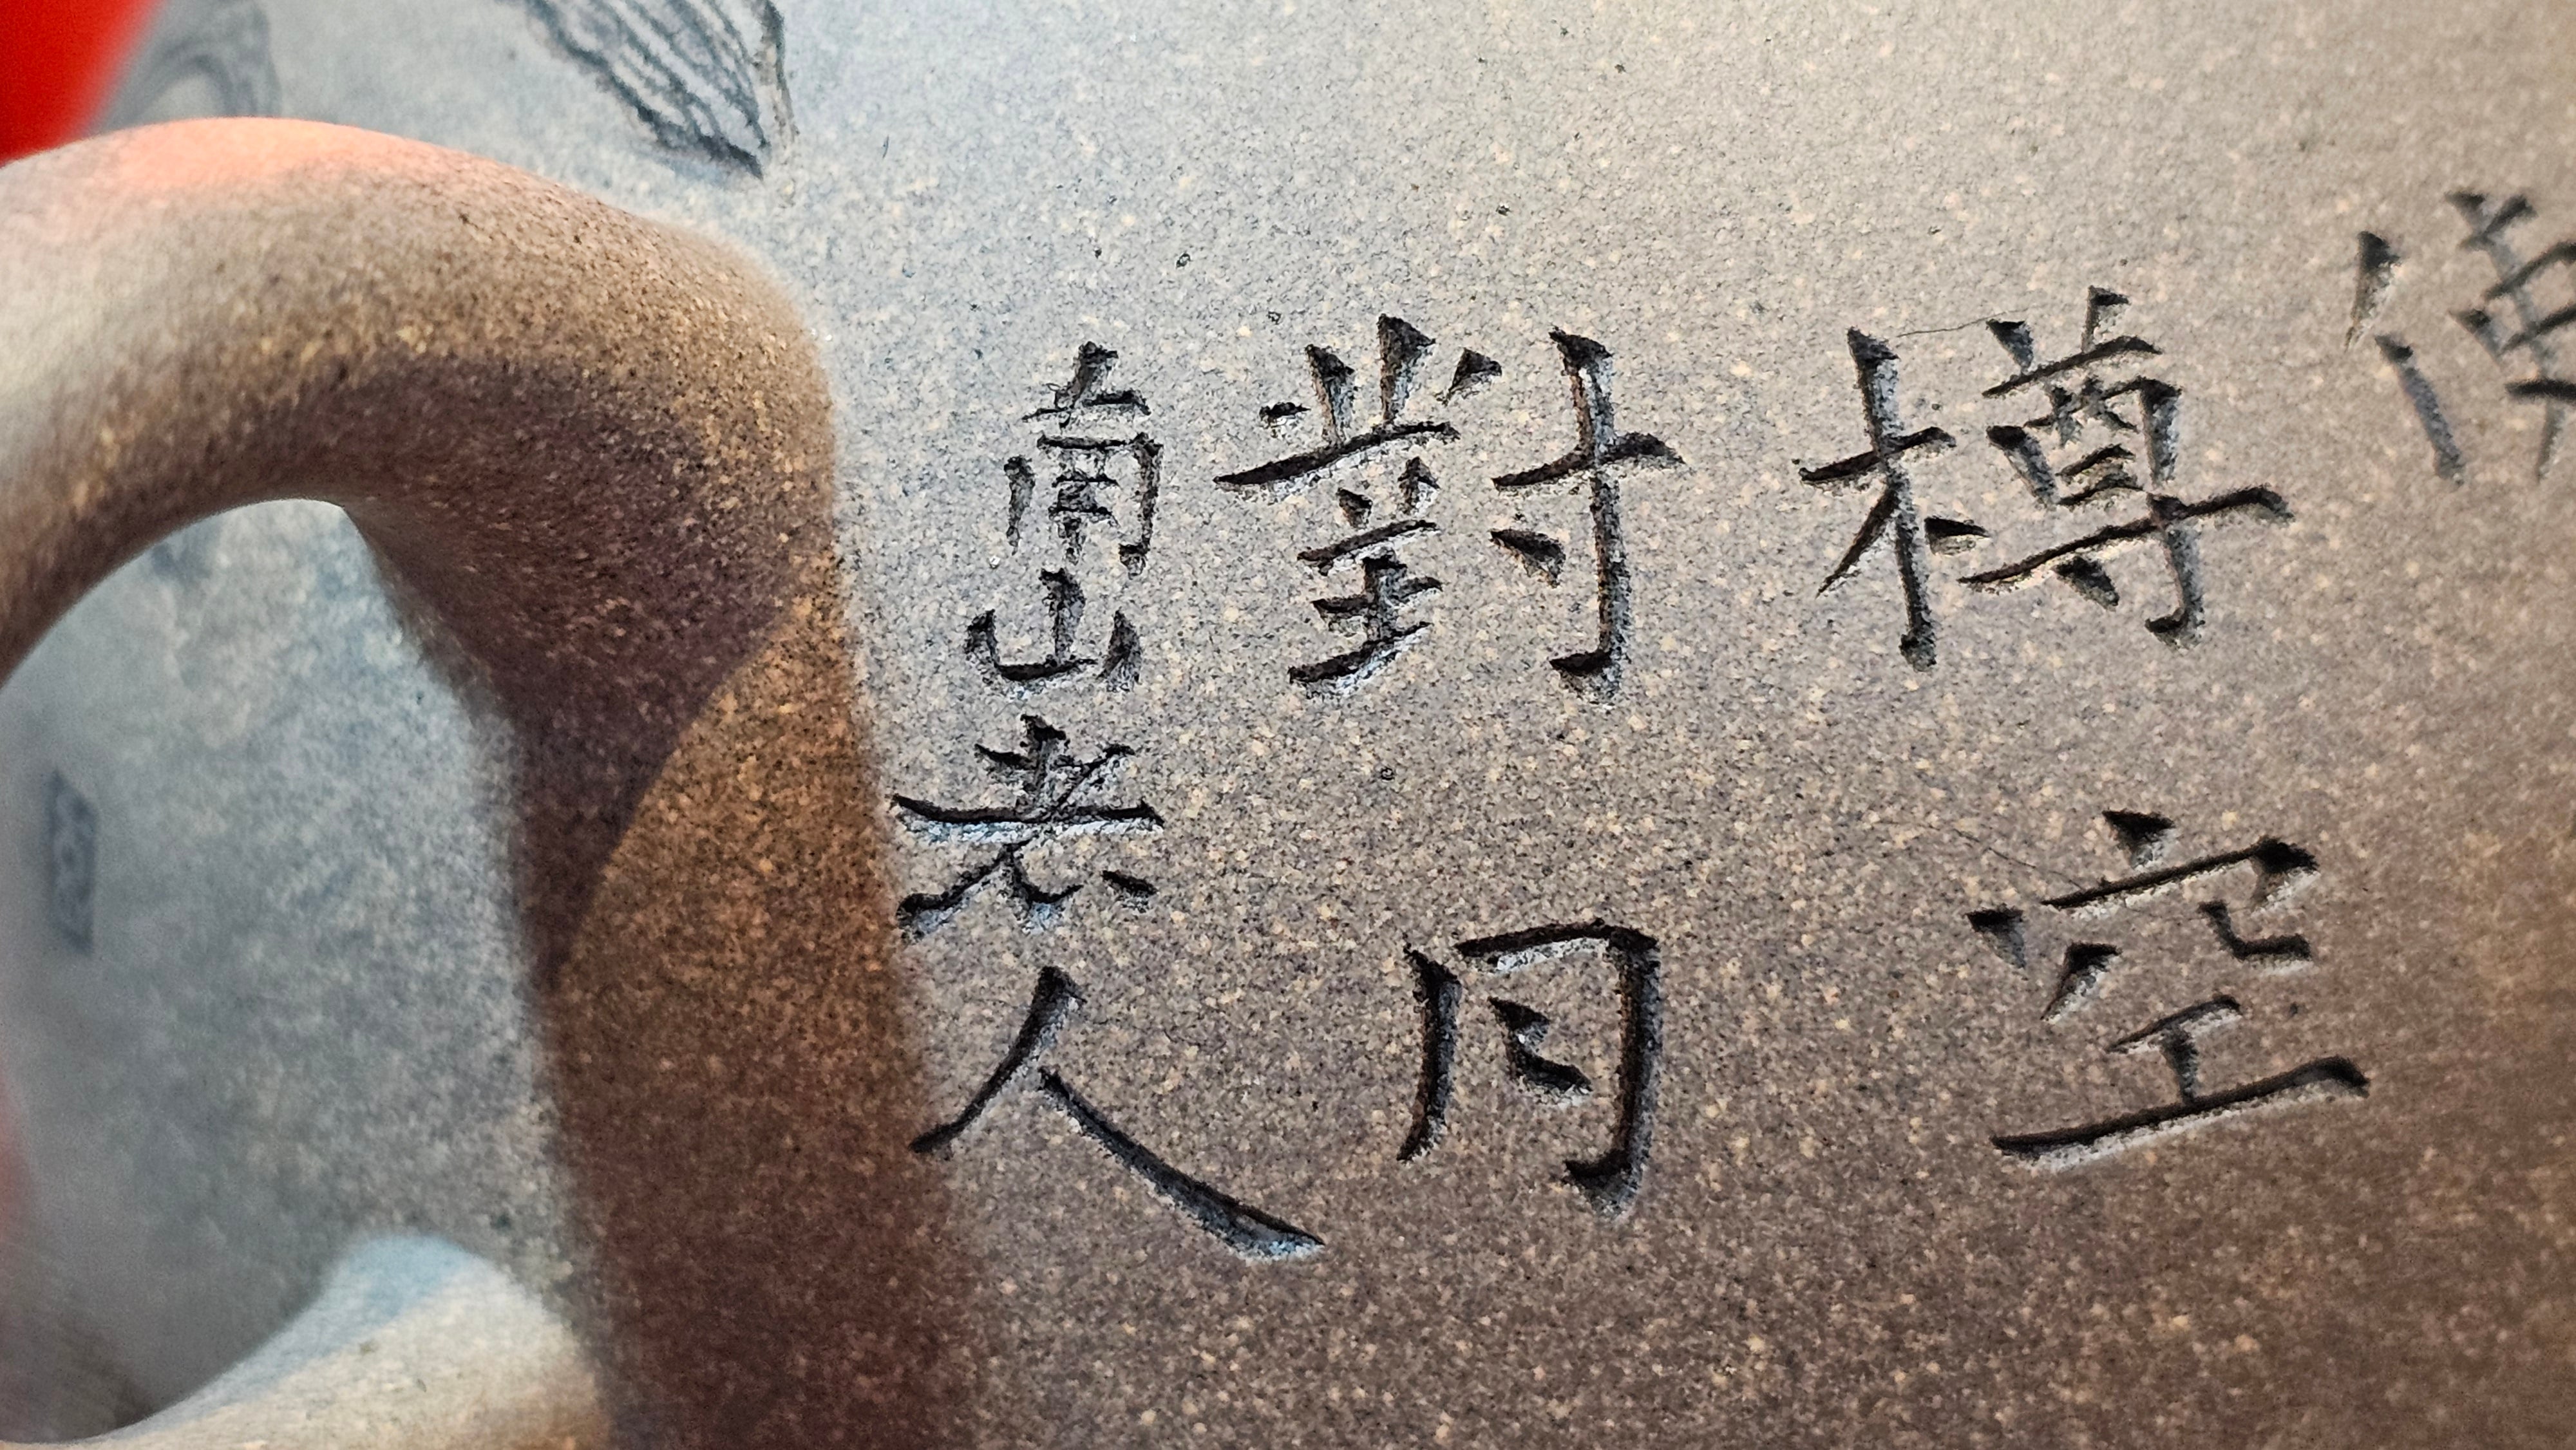 使
樽空
對月
南山老人